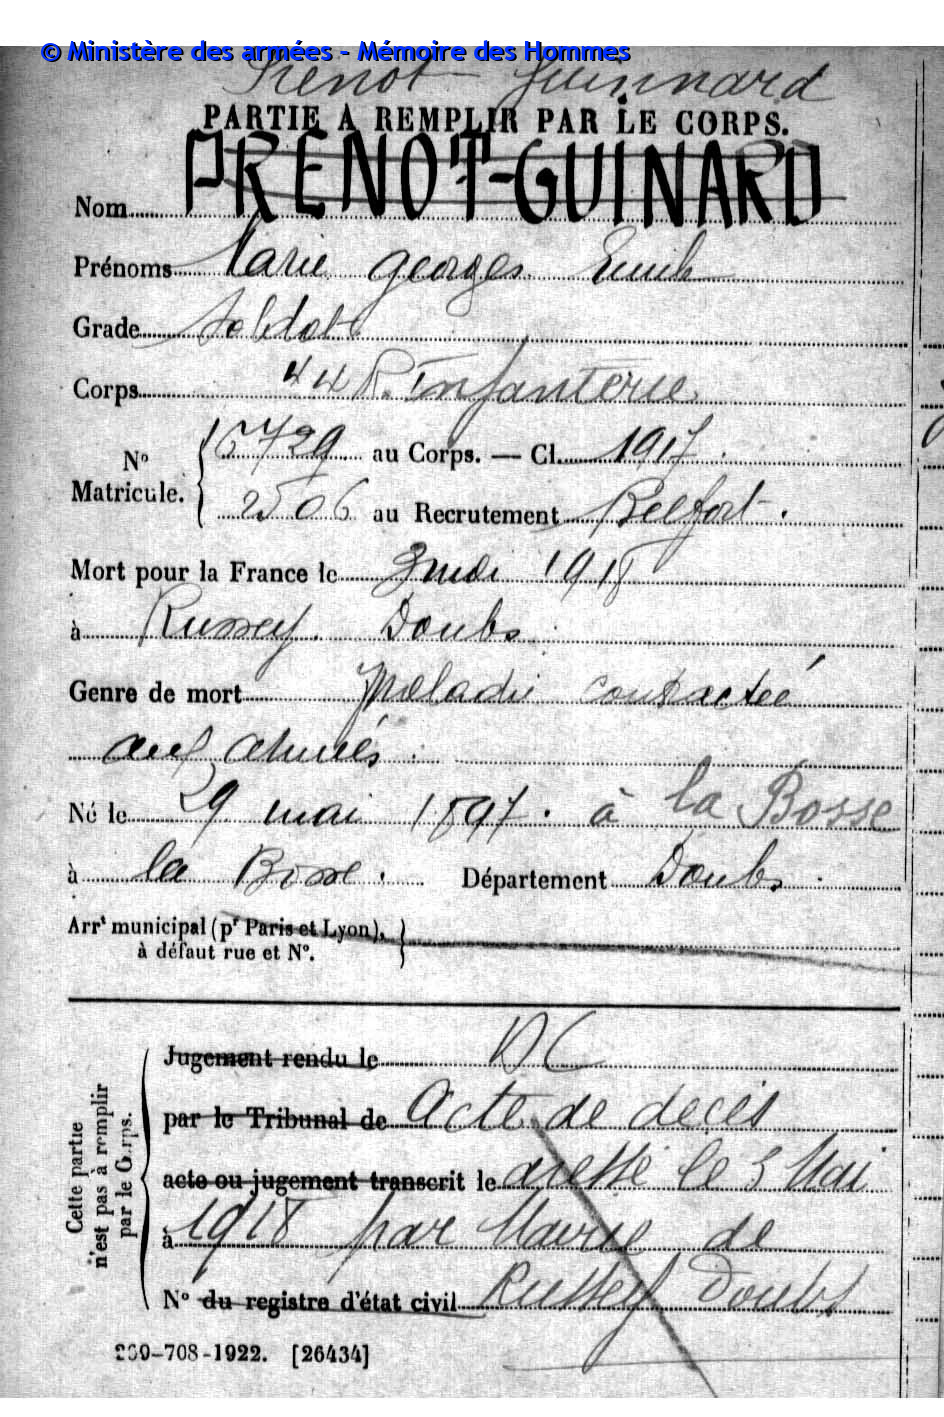 © Ministère des armées - Mémoire des Hommes
Prenot Guinnard
PARTIE À REMPLIR PAR LE CORPS.
PRENOT-GUINARD
Nom
Prénoms Marie georges Emile
Grade Soldat
Corps 44 R. Infanterie
N° Matricule. 6729 au Corps. — Cl. 1917.
2506 au Recrutement Belfort.
Mort pour la France le 3 mai 1918
à Russey. Doubs
Genre de mort maladie contractée
aux armées.
Né le 29 mai 1897. à la Bosse
à la Bosse. Département Doubs.
Arrt municipal (pr Paris et Lyon),
à défaut rue et N°.
Cette partie
n'est pas à remplir
par le Corps.
Jugement rendu le DC
par le Tribunal de Acte de decès
acte ou jugement transcrit le dressé le 3 Mai
à 1918 par Mairie de
N° du registre d'état civil Russey Doubs
-708-1922. [26434]